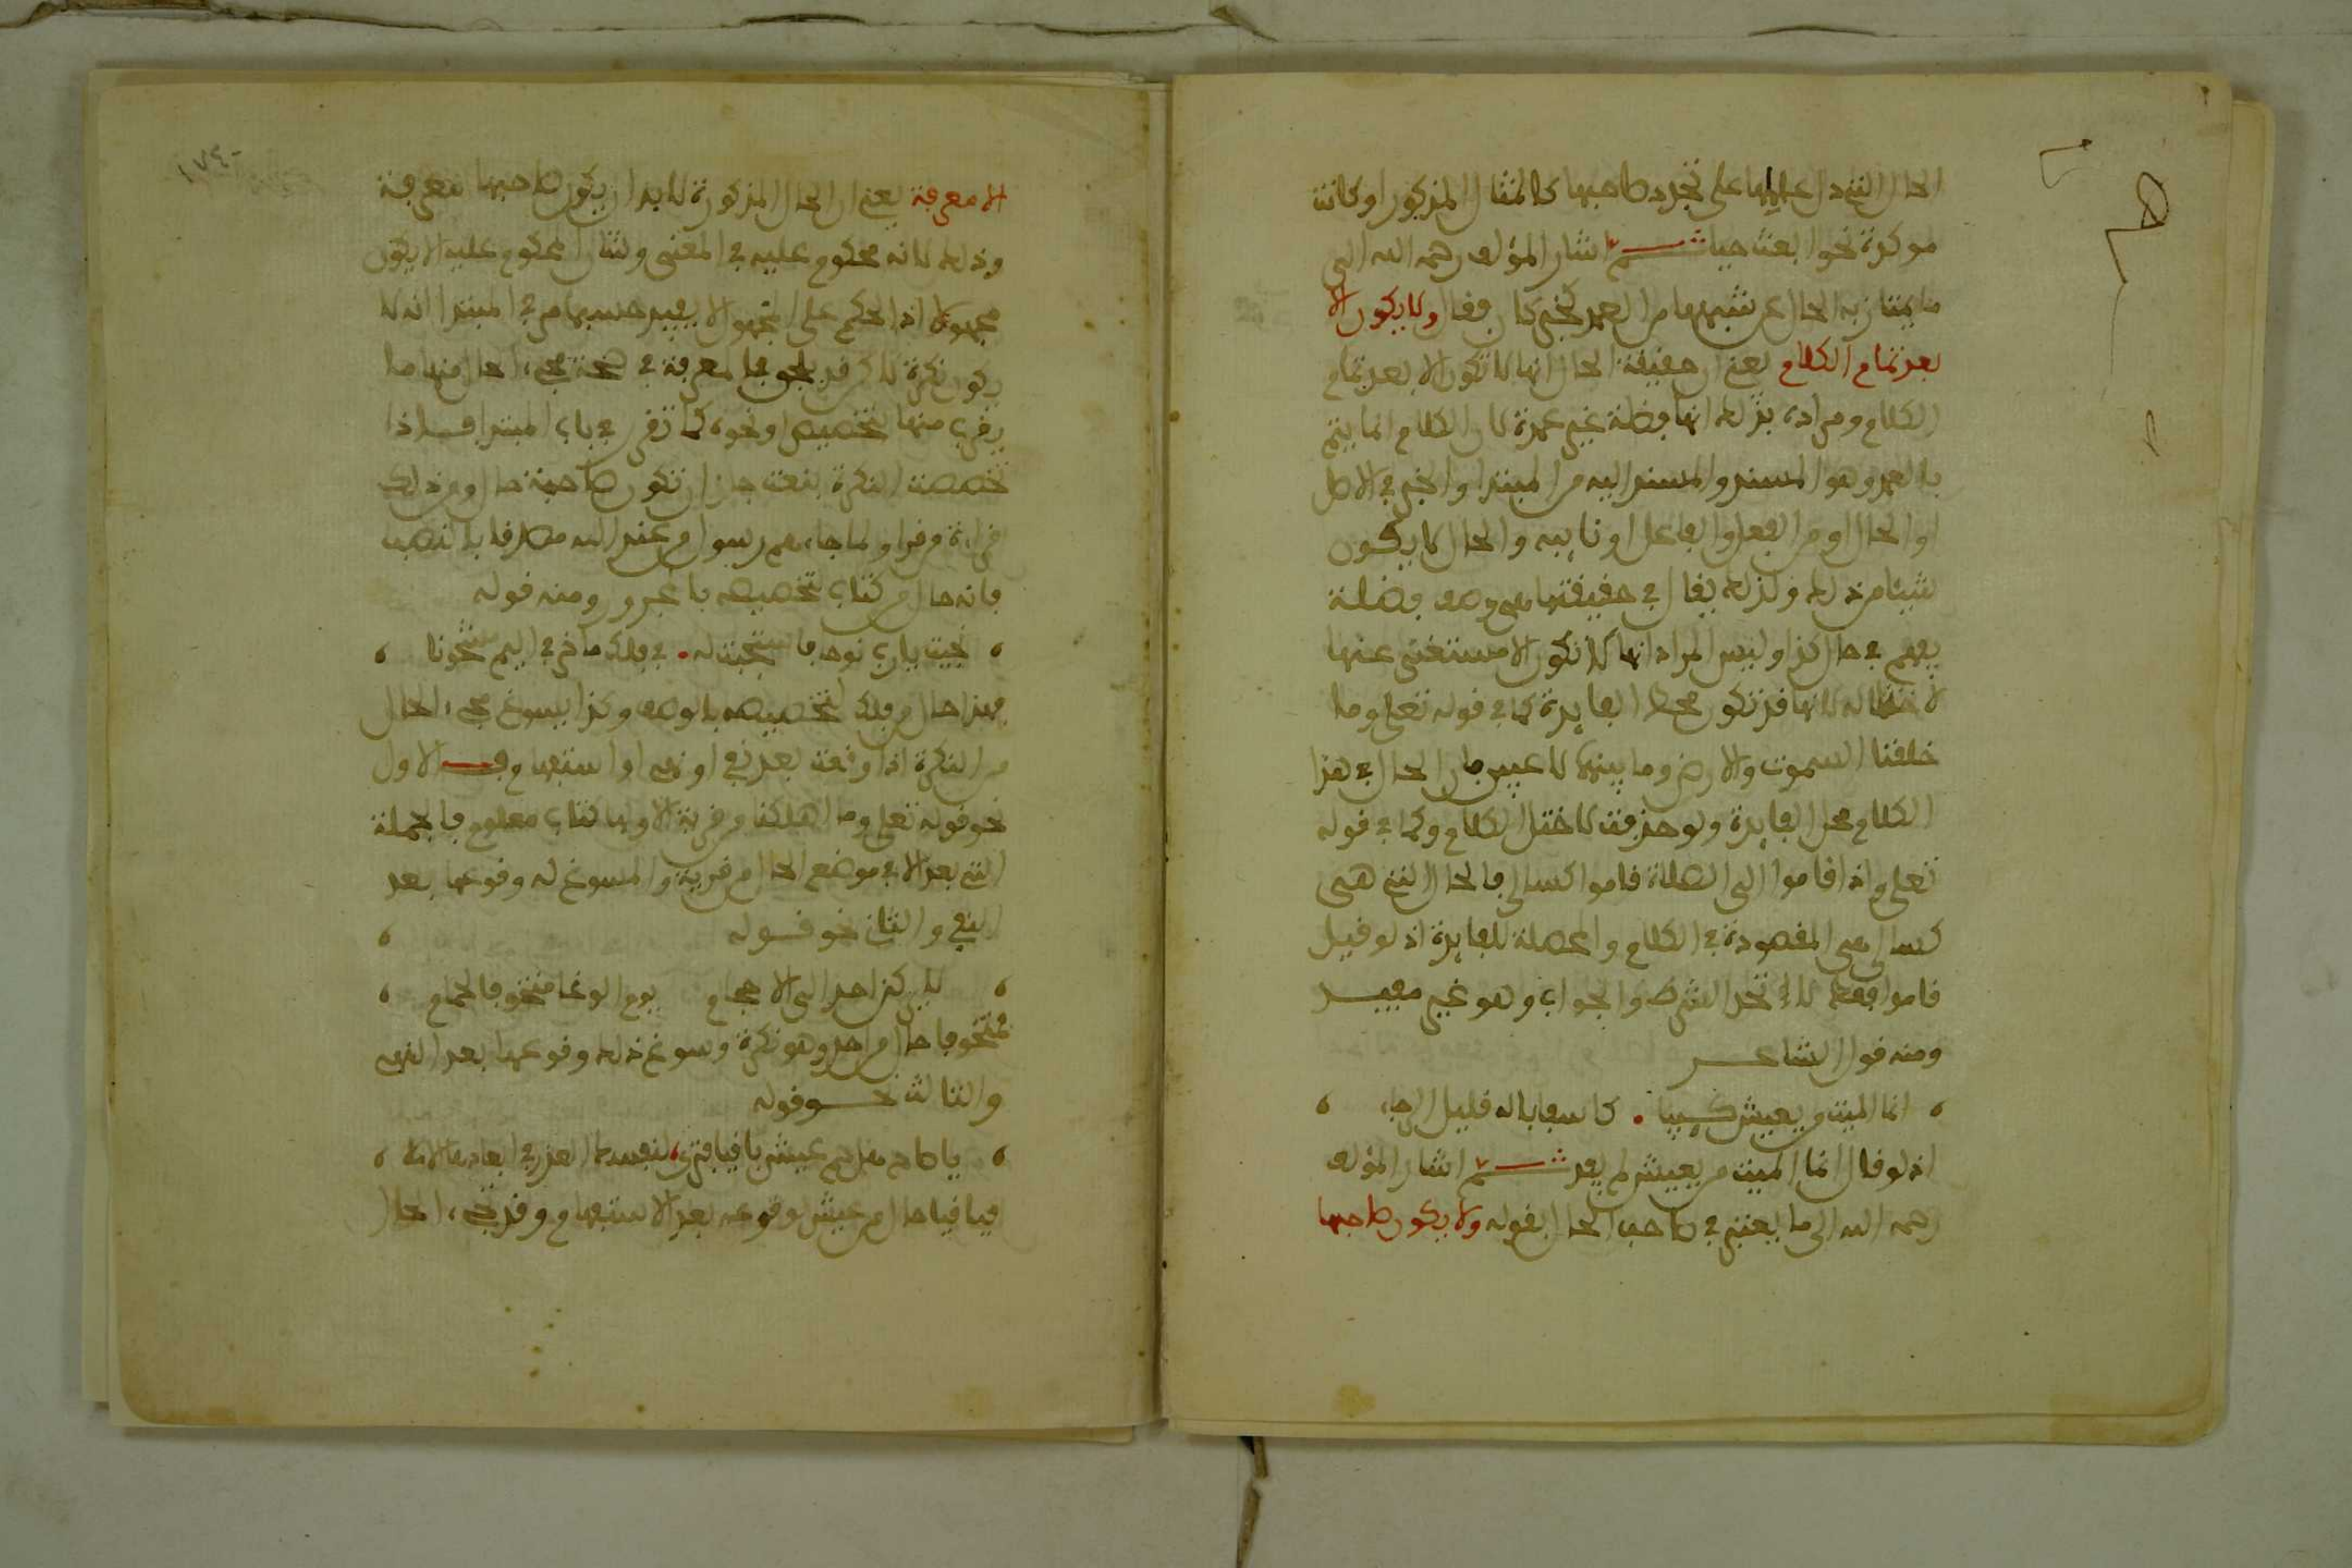 الحال التي دل عاملها على تجدد صاحبها كالمثال المذكور او كانت
موكدة نحو ابعث حيا ثم اشار المؤلف رحمه الله الى
ما يمتاز به الحال عن شبهها من العمد كخبر كان فقال ولا يكون الا
بعد تمام الكلام يعني ان حقيقة الحال انها لا تكون الا بعد تمام
الكلام ومراده بذلك انها فضلة غير عمدة لان الكلام انما يتم
بالعمد وهو المسند والمسند اليه من المبتدا والخبر في الاصل
او الحال او من الفعل والفاعل او نايبه والحال لا يكون
شيئا من ذلك ولذلك يقال في حقيقتها هي وصف فضلة
يفهم في حال كذا وليس المراد انها لا تكون الا مستغنى عنها
لانها قد تكون محط الفايدة كما في قوله تعلى وما
خلقنا السموت والارض وما بينهما لاعبين فان الحال في هذا
الكلام محل الفايدة ولو حذفت لاختل الكلام وكما في قوله
تعلى واذا قاموا الى الصلاة قاموا كسالى فالحال التي هي
كسالى هي المقصودة في الكلام والمحصلة للفايدة اذ لو قيل
قاموا فقط لاتحد الشرط والجواب وهو غير مفيد
ومنه قول الشاعر
انما الميت من يعيش كئيبا . كاسفا باله قليل الرجاء
اذ لو قال انما الميت من يعيش لم يفد ثم اشار المؤلف
رحمه الله الى ما يعتبر في صاحب الحال بقوله ولا يكون صاحبها
الا معرفة يعني ان الحال المذكورة لا بد ان يكون صاحبها معرفة
وذلك لانه محكوم عليه في المعنى وشان المحكوم عليه الا يكون
مجهولا اذ الحكم على المجهول لا يفيد حسبما مر في المبتدا انه لا
يكون نكرة لاكن قد يلحق بالمعرفة في صحة مجيء الحال منها ما
يقرب منها بتخصيص او نحوه كما تقرر في باب المبتدا فاذا
تخصصت النكرة بنعت جاز ان تكون صاحبة حال ومن ذلك
قراءة من قرا ولما جاءهم رسول من عند الله مصدقا بالنصب
فانه حال من كتاب لتخصيصه بالمجرور ومنه قوله
نجيت يا رب نوحا واستجبت له . في فلك ماخر في اليم مشحونا
فهذا حال من فلك لتخصيصه بالوصف وكذا يسوغ مجيء الحال
من النكرة اذا وقعت بعد نفي او نهي او استفهام فالاول
نحو قوله تعلى وما اهلكنا من قرية الا ولها كتاب معلوم فالجملة
التي بعد الا في موضع الحال من قرية والمسوغ له وقوعها بعد
النفي والثاني نحو قوله
لا يركنن احد الى الاحجام يوم الوغا متخوفا لحمام
فمتخوفا حال من احد وهو نكرة وسوغ ذلك وقوعها بعد النهي
والثالث نحو قوله
يا صاح هل حم عيش باقيا فترى لنفسك العذر في ابعادها الاملا
فباقيا حال من عيش لوقوعه بعد الاستفهام وقد تجيء الحال